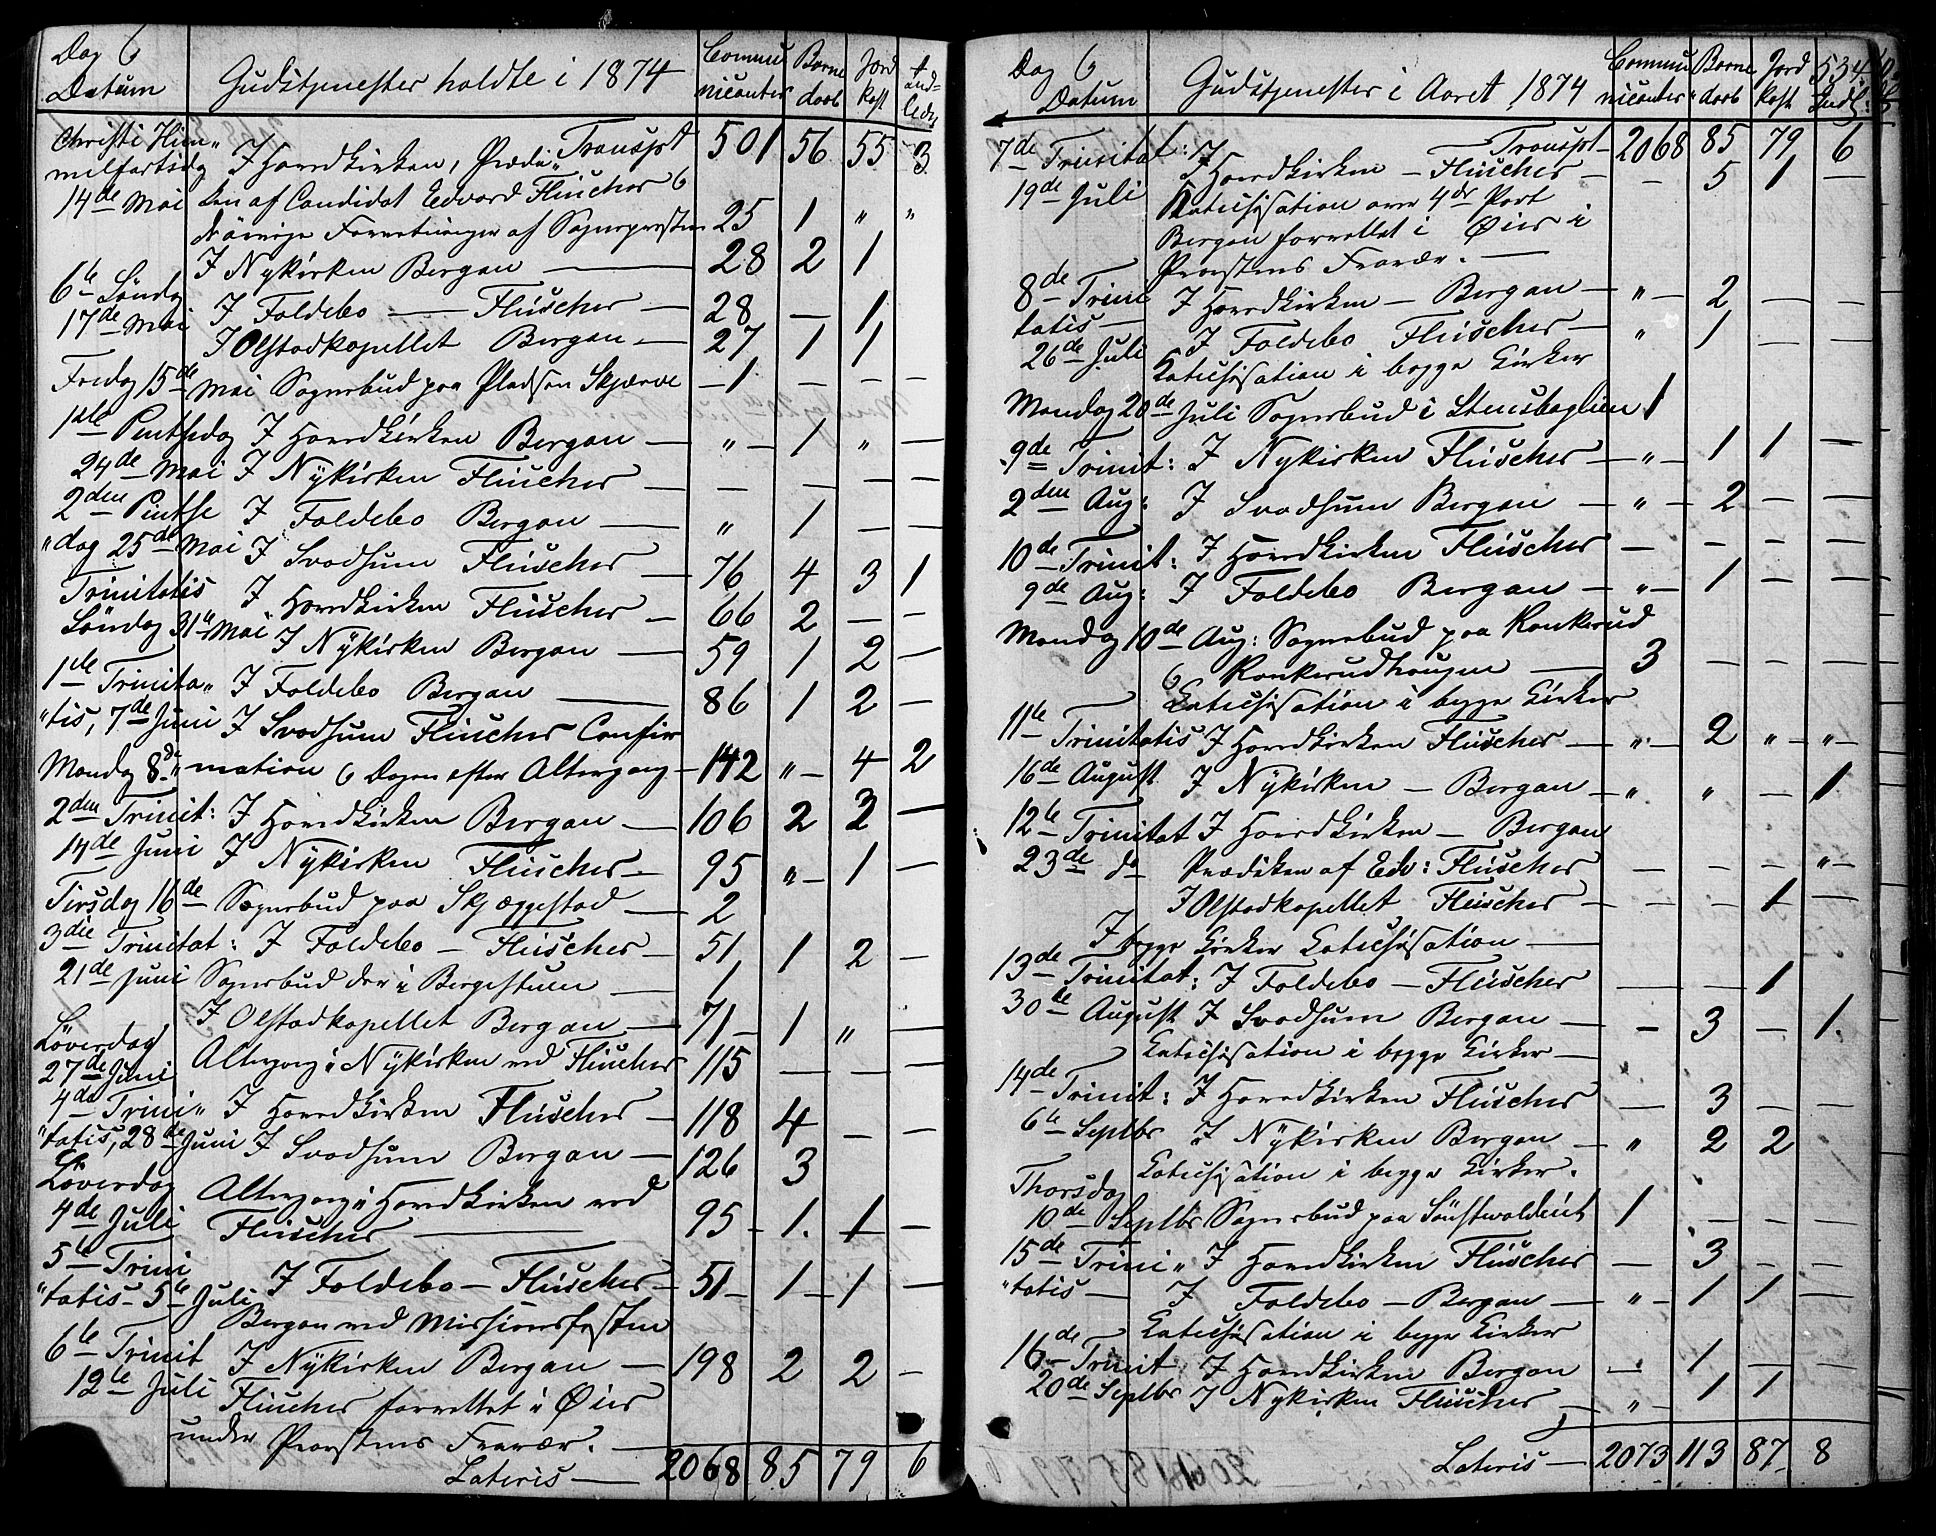 Dag & Datum
Gudstjenester holdte i 1874
Communicanter
Barnedaab
Jordkast
Indledn
Transpt 501 56 55 3
Christi Himmelfartsdag I Hovedkirken, Prædi„
14de Mai ken af Candidat Edvard Fleischer &
øvrige Forretninger af Sognepresten 25 1 „ „
I Nykirken Bergan — 28 2 1
6te Søndag I Foldebo — Fleischer — 28 — 1
17de Mai I Olstadkapellet Bergan — 27 1 1
Fredag 15de Mai Sognebud paa Pladsen Skjærve — 1 — — —
1ste Pintsedag I Hovedkirken Bergan — „ — 1 „ —
24de Mai I Nykirken Fleischer — — — — —
2den Pintse I Foldebo Bergan — „ 1 — —
„dag 25de Mai I Svadsum Fleischer — 76 4 3 1
Trinitatis I Hovedkirken Fleischer — 66 2 — —
Søndag 31te Mai I Nykirken Bergan — 59 1 2 —
1ste Trinita„ I Foldebo Bergan — 86 1 2 —
„tis, 7de Juni I Svadsum Fleischer Confir
Mandag 8de „mation & Dagen efter Altergang — 142 „ — 4 2
2den Trinit: I Hovedkirken Bergan — 106 2 2 —
14de Juni I Nykirken Fleischer — 95 „ — 1 —
Tirsdag 16de Sognebud paa Skjæggestad — 2
3die Trinitat: I Foldebo — Fleischer — 51 1 2 —
21de Juni Sognebud der i Bergestuen — 1
I Olstadkapellet Bergan — 71 — 1 „ —
Løverdag
27de Juni Altergang i Nykirken ved Fleischer 115 — — —
4de Trini„ I Hovedkirken Fleischer — 118 4 — —
„tatis, 28de Juni I Svadsum Bergan — 126 3
Løverdag Altergang i Hovedkirken ved
4de Juli Fleischer — 95 — 1. 1 —
5te Trini
„tatis — 5te Juli I Foldebo — Fleischer — 51 — 1 — 1 —
Bergan ved Missionsfesten
6te Trinit I Nykirken Bergan — 198 2 2 —
12te Juli Fleischer forrettet i Øier
under Provstens Fravær. —
Lateris — 2068 85 79 6
Dag & Datum
Gudstjenester i Aaret 1874
Communicanter
Barnedaab
Jordkast
Indl:
Transpt — 2068 85 79 6
7de Trinitat: I Hovedkirken — Fleischer — — 5 1 —
19de Juli Katechisation over 4de Part
Bergan forrettet i Øier i
Provstens Fravær. —
8de Trini I Hovedkirken — Bergan — „ — 2 — —
tatis — I Foldebo Fleischer — „ 1 — —
26de Juli Katechisation i begge Kirker
Mandag 20de Juli Sognebud i Stensbaglien 1
9de Trinit: I Nykirken Fleischer — „ — 1 1 —
2den Aug: I Svadsum Bergan — „ — 2 — —
10de Trinit: I Hovedkirken Fleischer — — — —
9de Aug: I Foldebo Bergan — „ — 1 — —
Mandag 10de Aug: Sognebud paa Ronkerud
& Ronkerudhougen — 3 — — —
Katechisation i begge Kirker
11te Trinitatis I Hovedkirken Fleischer — „ — 2 „ — „ —
16de August I Nykirken — Bergan — „ „ — 1
12te Trinitat I Hovedkirken — Bergan
23de do Prædiken af Edv: Fleischer — — — „ —
I Olstadkapellet Fleischer — — — 1 —
I begge Kirker Katechisation —
13de Trinitat: I Foldebo — Fleischer — — — 1
30te August I Svadsum Bergan — — 3 — 1.
Katechisation i begge Kirker —
14de Trinit: I Hovedkirken Fleischer — 3 — —
6te Septbr I Nykirken Bergan — „ 2 2
Katechisation i begge Kirker.
Thorsdag
10de Septbr Sognebud paa 1 — — —
15de Trini„ I Hovedkirken Fleischer — 3 — —
„tatis — I Foldebo — Bergan — „ — 1 1 —
Katechisation i begge Kirker
16de Trinit I Hovedkirken Bergan — 1 — —
20de Septbr I Nykirken Fleischer — „ — 1 1
Lateris — 2073 113 87 8